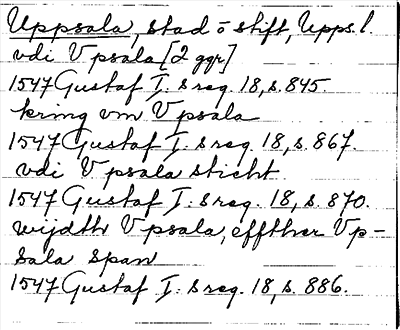 Uppsala, stad o stift, Upps. l.
vdi Vpsala [2 ggr]
1547 Gustaf I:s reg. 18, s. 845.
kring vm Vpsala
1547 Gustaf I:s reg. 18, s. 867.
vdi Vpsala sticht
1547 Gustaf I:s reg. 18, s. 870.
wijdth Vpsala, effther Vp-
sala span
1547 Gustaf I:s reg. 18, s. 886.